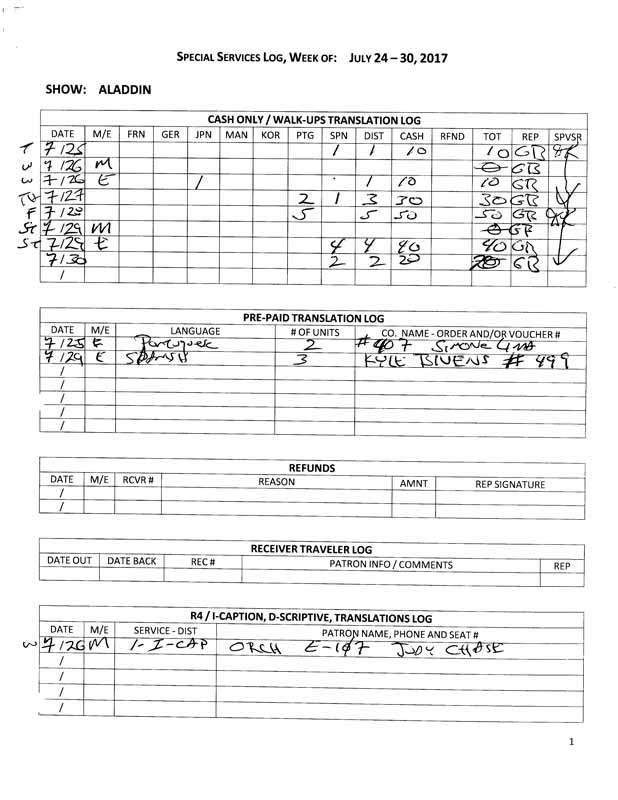 SPECIAL SERVICES LOG, WEEK OF: JULY 24 – 30, 2017
SHOW: ALADDIN
CASH ONLY / WALK-UPS TRANSLATION LOG
DATE M/E FRN GER JPN MAN KOR PTG SPN DIST CASH RFND TOT REP SPVSR
T 7/25 1 1 10 10 GB
W 7/26 M 0 GB
W 7/26 E 1 1 10 10 GB
TH 7/27 2 1 3 30 30 GB
F 7/28 5 5 50 50 GB
ST 7/29 M 0 GB
ST 7/29 E 4 4 40 40 GB
7/30 2 2 20 20 GB
/
PRE-PAID TRANSLATION LOG
DATE M/E LANGUAGE # OF UNITS CO. NAME - ORDER AND/OR VOUCHER #
7/25 E Portuguese 2 #407 SIMONE LIMA
7/29 E SPANISH 3 KYLE BIVENS # 499
/
/
/
/
REFUNDS
DATE M/E RCVR # REASON AMNT REP SIGNATURE
/
/
RECEIVER TRAVELER LOG
DATE OUT DATE BACK REC # PATRON INFO / COMMENTS REP
R4 / I-CAPTION, D-SCRIPTIVE, TRANSLATIONS LOG
DATE M/E SERVICE - DIST PATRON NAME, PHONE AND SEAT #
W 7/26 M 1-I-CAP ORCH E-107 JUDY CHASE
/
/
/
/
1